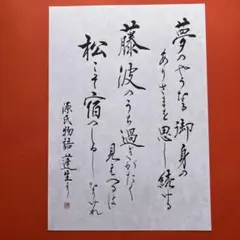 夢のやうなる御身の
ありさまを思し続る
藤波のうち過ぎがたく
見えつるは
松こそ宿のしるしなりけれ
源氏物語 蓬生より